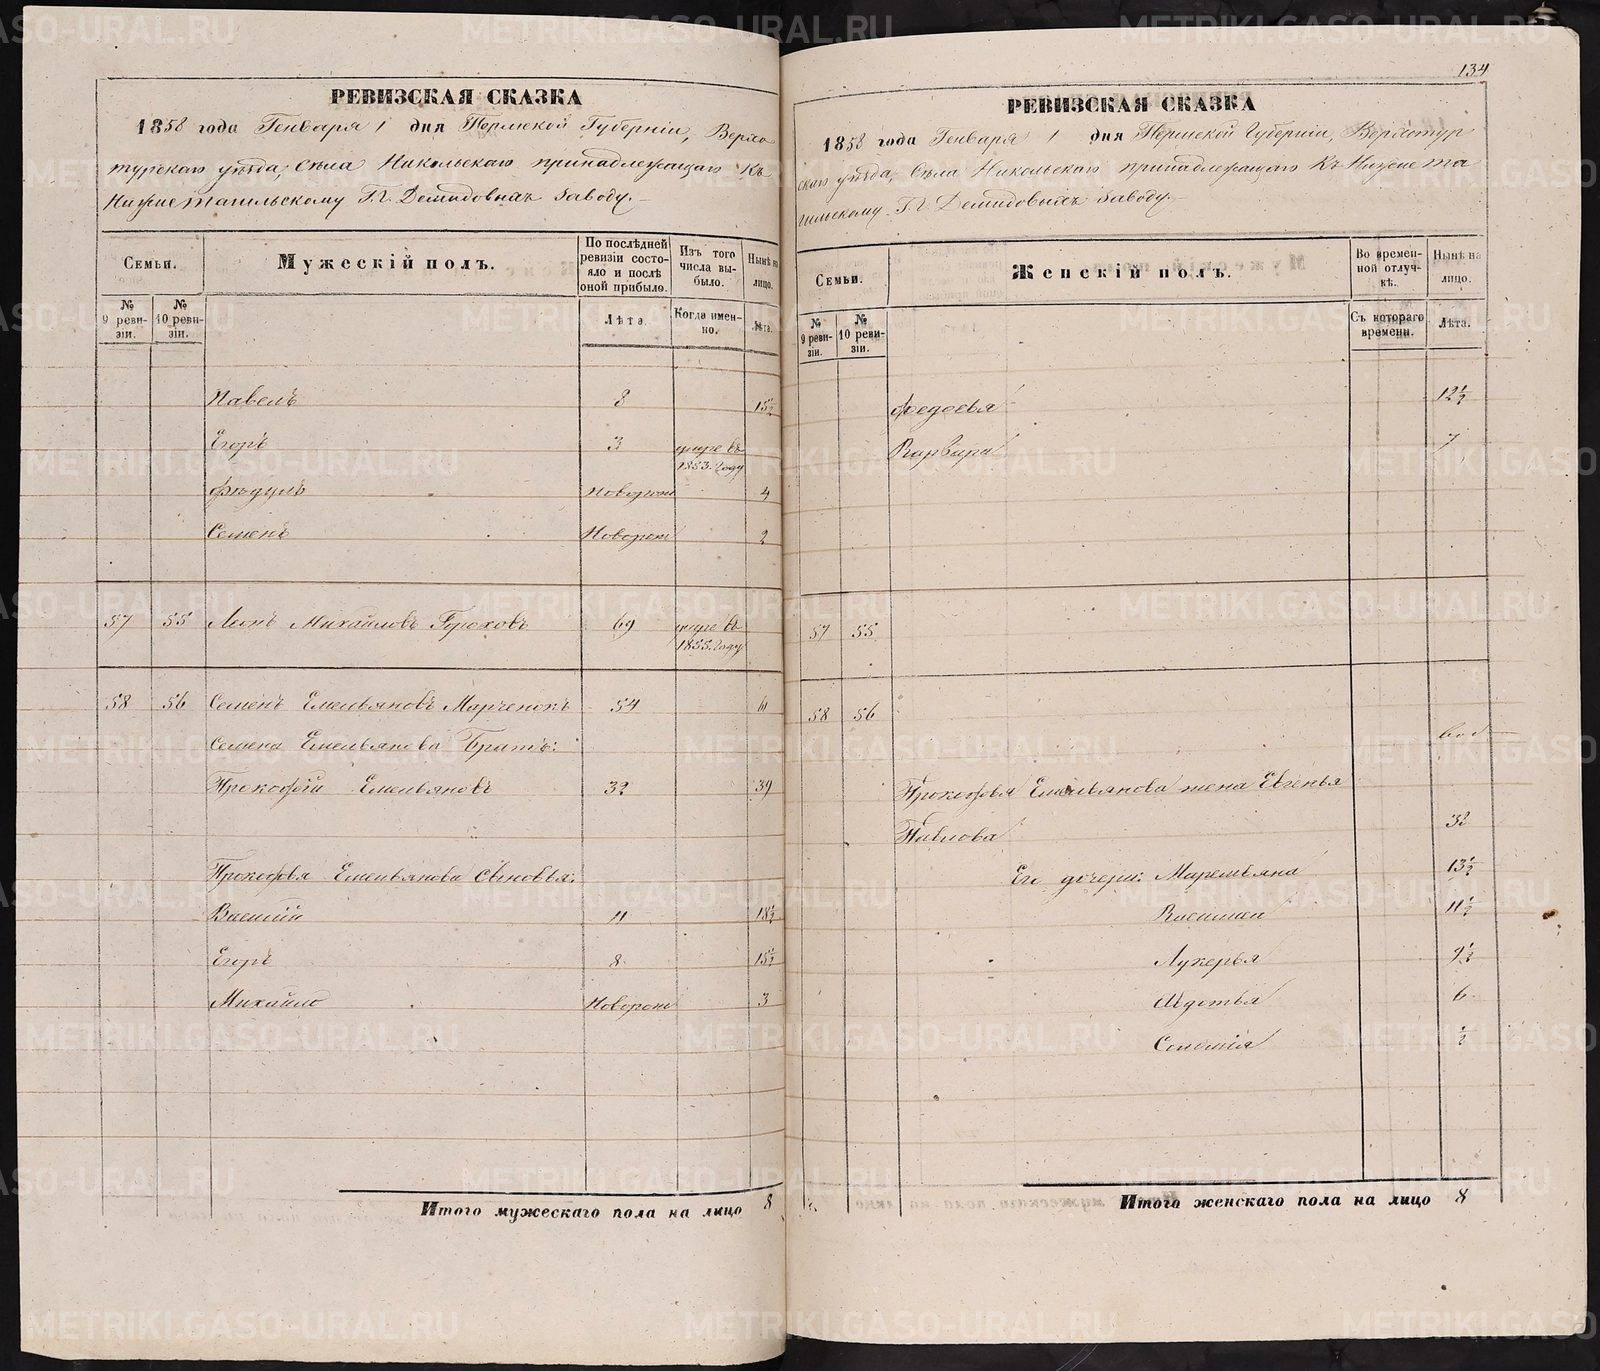 РЕВИЗСКАЯ СКАЗКА
1858 года Генваря 1 дня Пермской Губернiи, Верхо
турскаго уѣзда, Села Никольскаго принадлежащаго Къ
Нижнетагильскому Г.г. Демидовыхъ Заводу.
Семьи.
Мужескiй полъ.
По послѣдней ревизiи состояло и послѣ оной прибыло.
Изъ того числа выбыло.
Нынѣ на лицо.
№ 9 ревизiи.
№ 10 ревизiи.
Лѣта.
Когда именно.
Лѣта.
Павелъ 8 15½
Егоръ 3 умре въ 1853. Году
Фѣдулъ Новорож 4
Семенъ Новорож 2
57 55 Леонъ Михайловъ Гороховъ 69 умре въ 1855. Году
58 56 Семенъ Емельяновъ Марченокъ 54 61
Семена Емельянова Братъ:
Прокофiй Емельяновъ 32 39
Прокофья Емельянова Сыновья:
Василiй 11 18½
Егоръ 8 15½
Михайло Новорож 3
Итого мужескаго пола на лицо 8
134
РЕВИЗСКАЯ СКАЗКА
1858 года Генваря 1 дня Пермской Губернiи, Верхотур
скаго уѣзда, Села Никольскаго принадлежащаго Къ Нижнета
гильскому Г.г. Демидовыхъ Заводу.
Семьи.
Женскiй полъ.
Во временной отлучкѣ.
Нынѣ на лицо.
№ 9 ревизiи.
№ 10 ревизiи.
Съ котораго времени.
Лѣта.
Федосья 12½
Варвара 7
57 55
58 56
Прокофья Емельянова жена Евгенья
Павлова 32
Его дочери: Маремьяна 13½
Василиса 11½
Лукерья 9½
Авдотья 6
Соломiя ½
Итого женскаго пола на лицо 8
METRIKI.GASO-URAL.RU